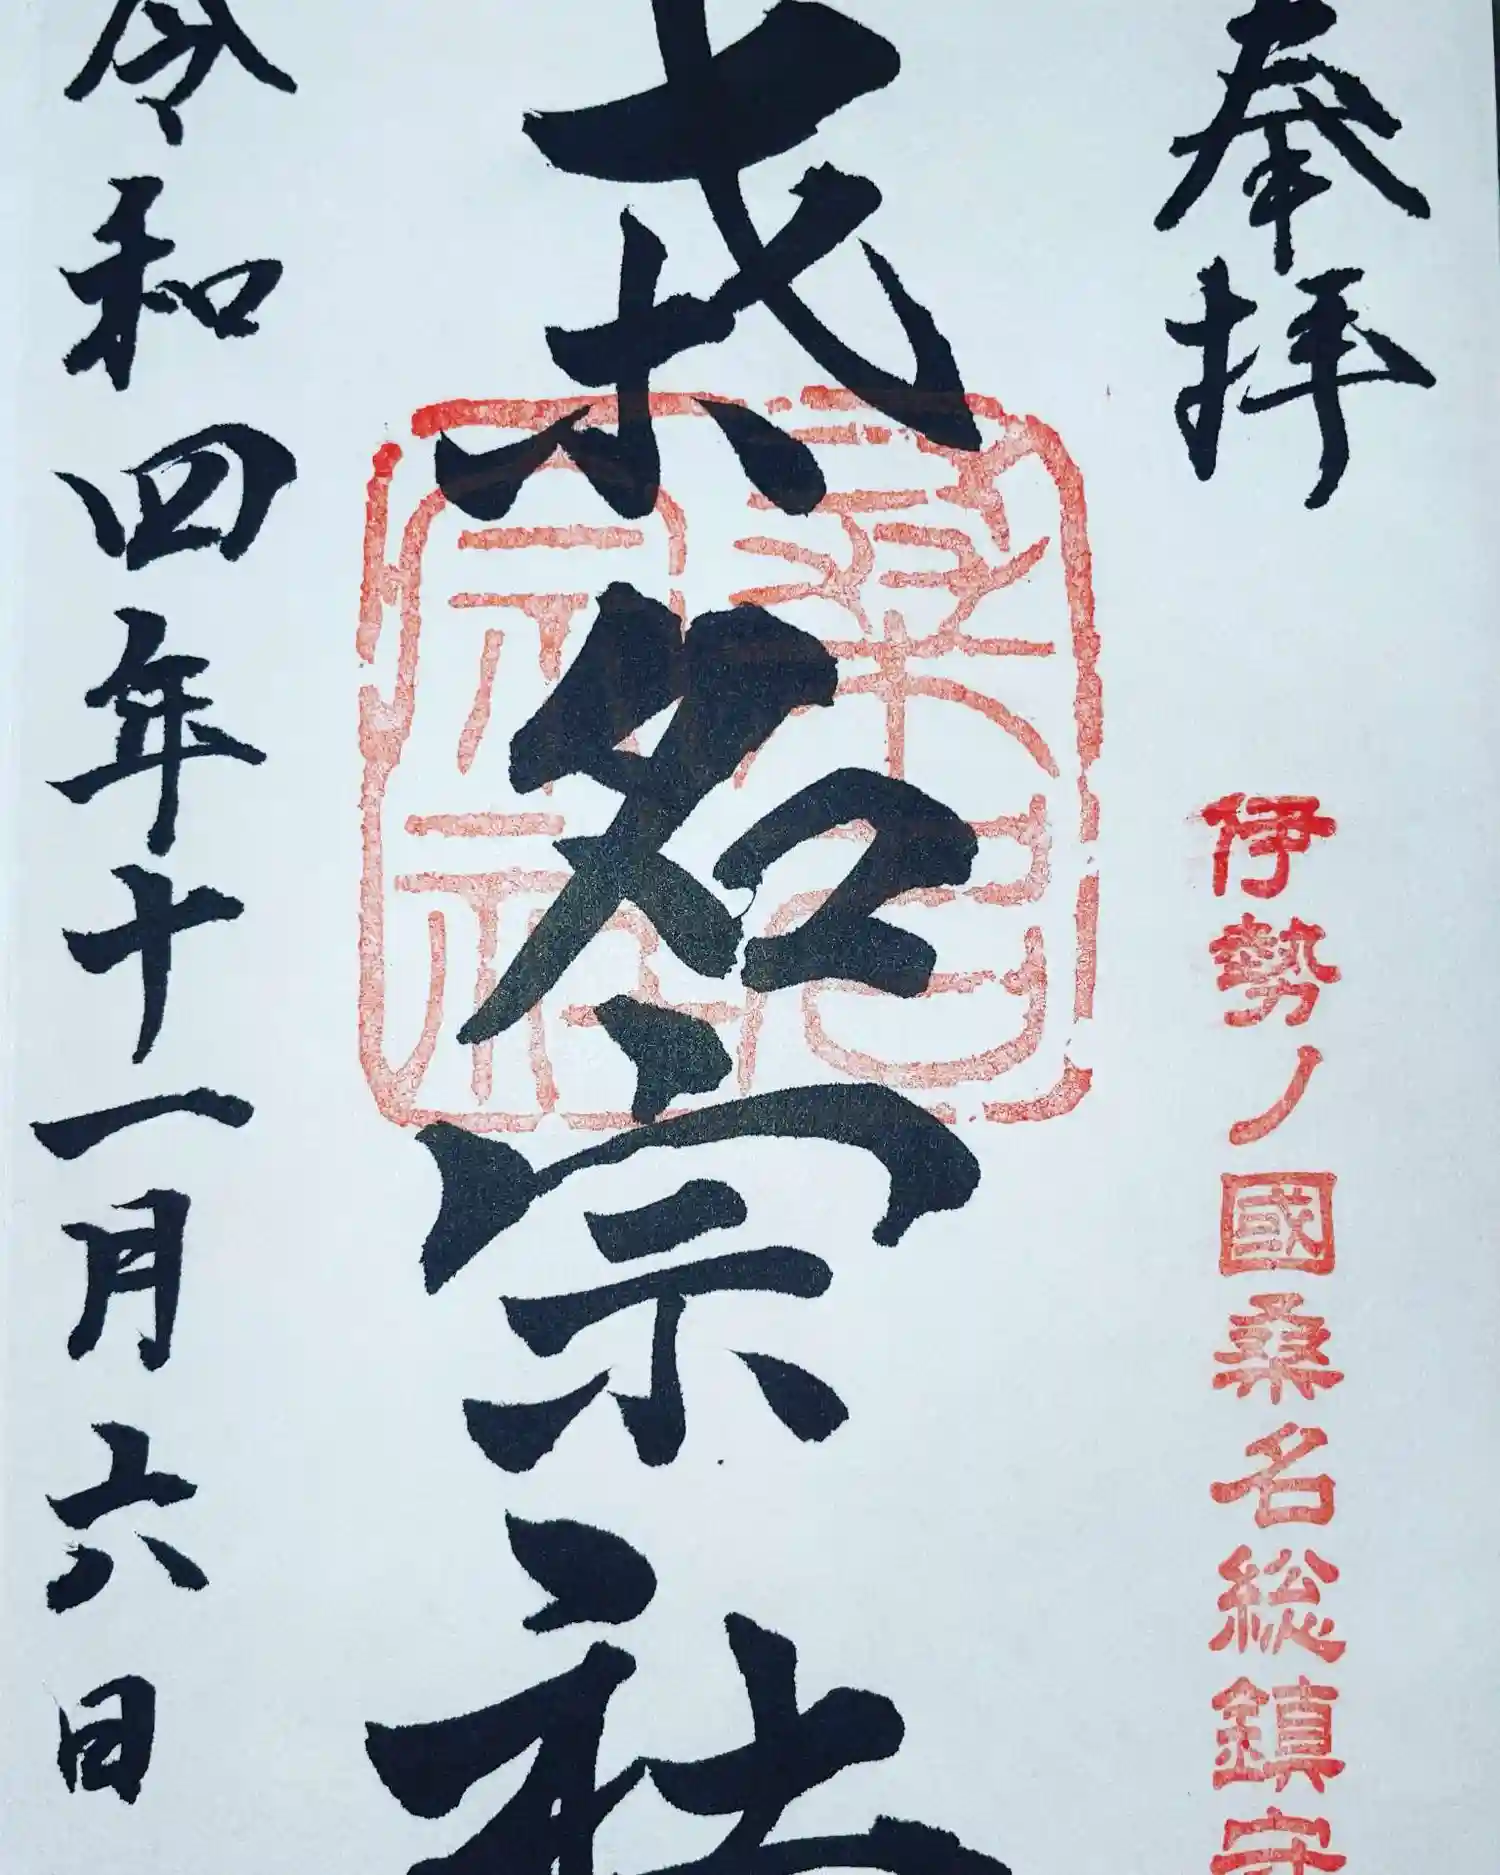 奉拝
伊勢ノ國桑名総鎮守
桑名宗社
桑名宗社
令和四年十一月六日